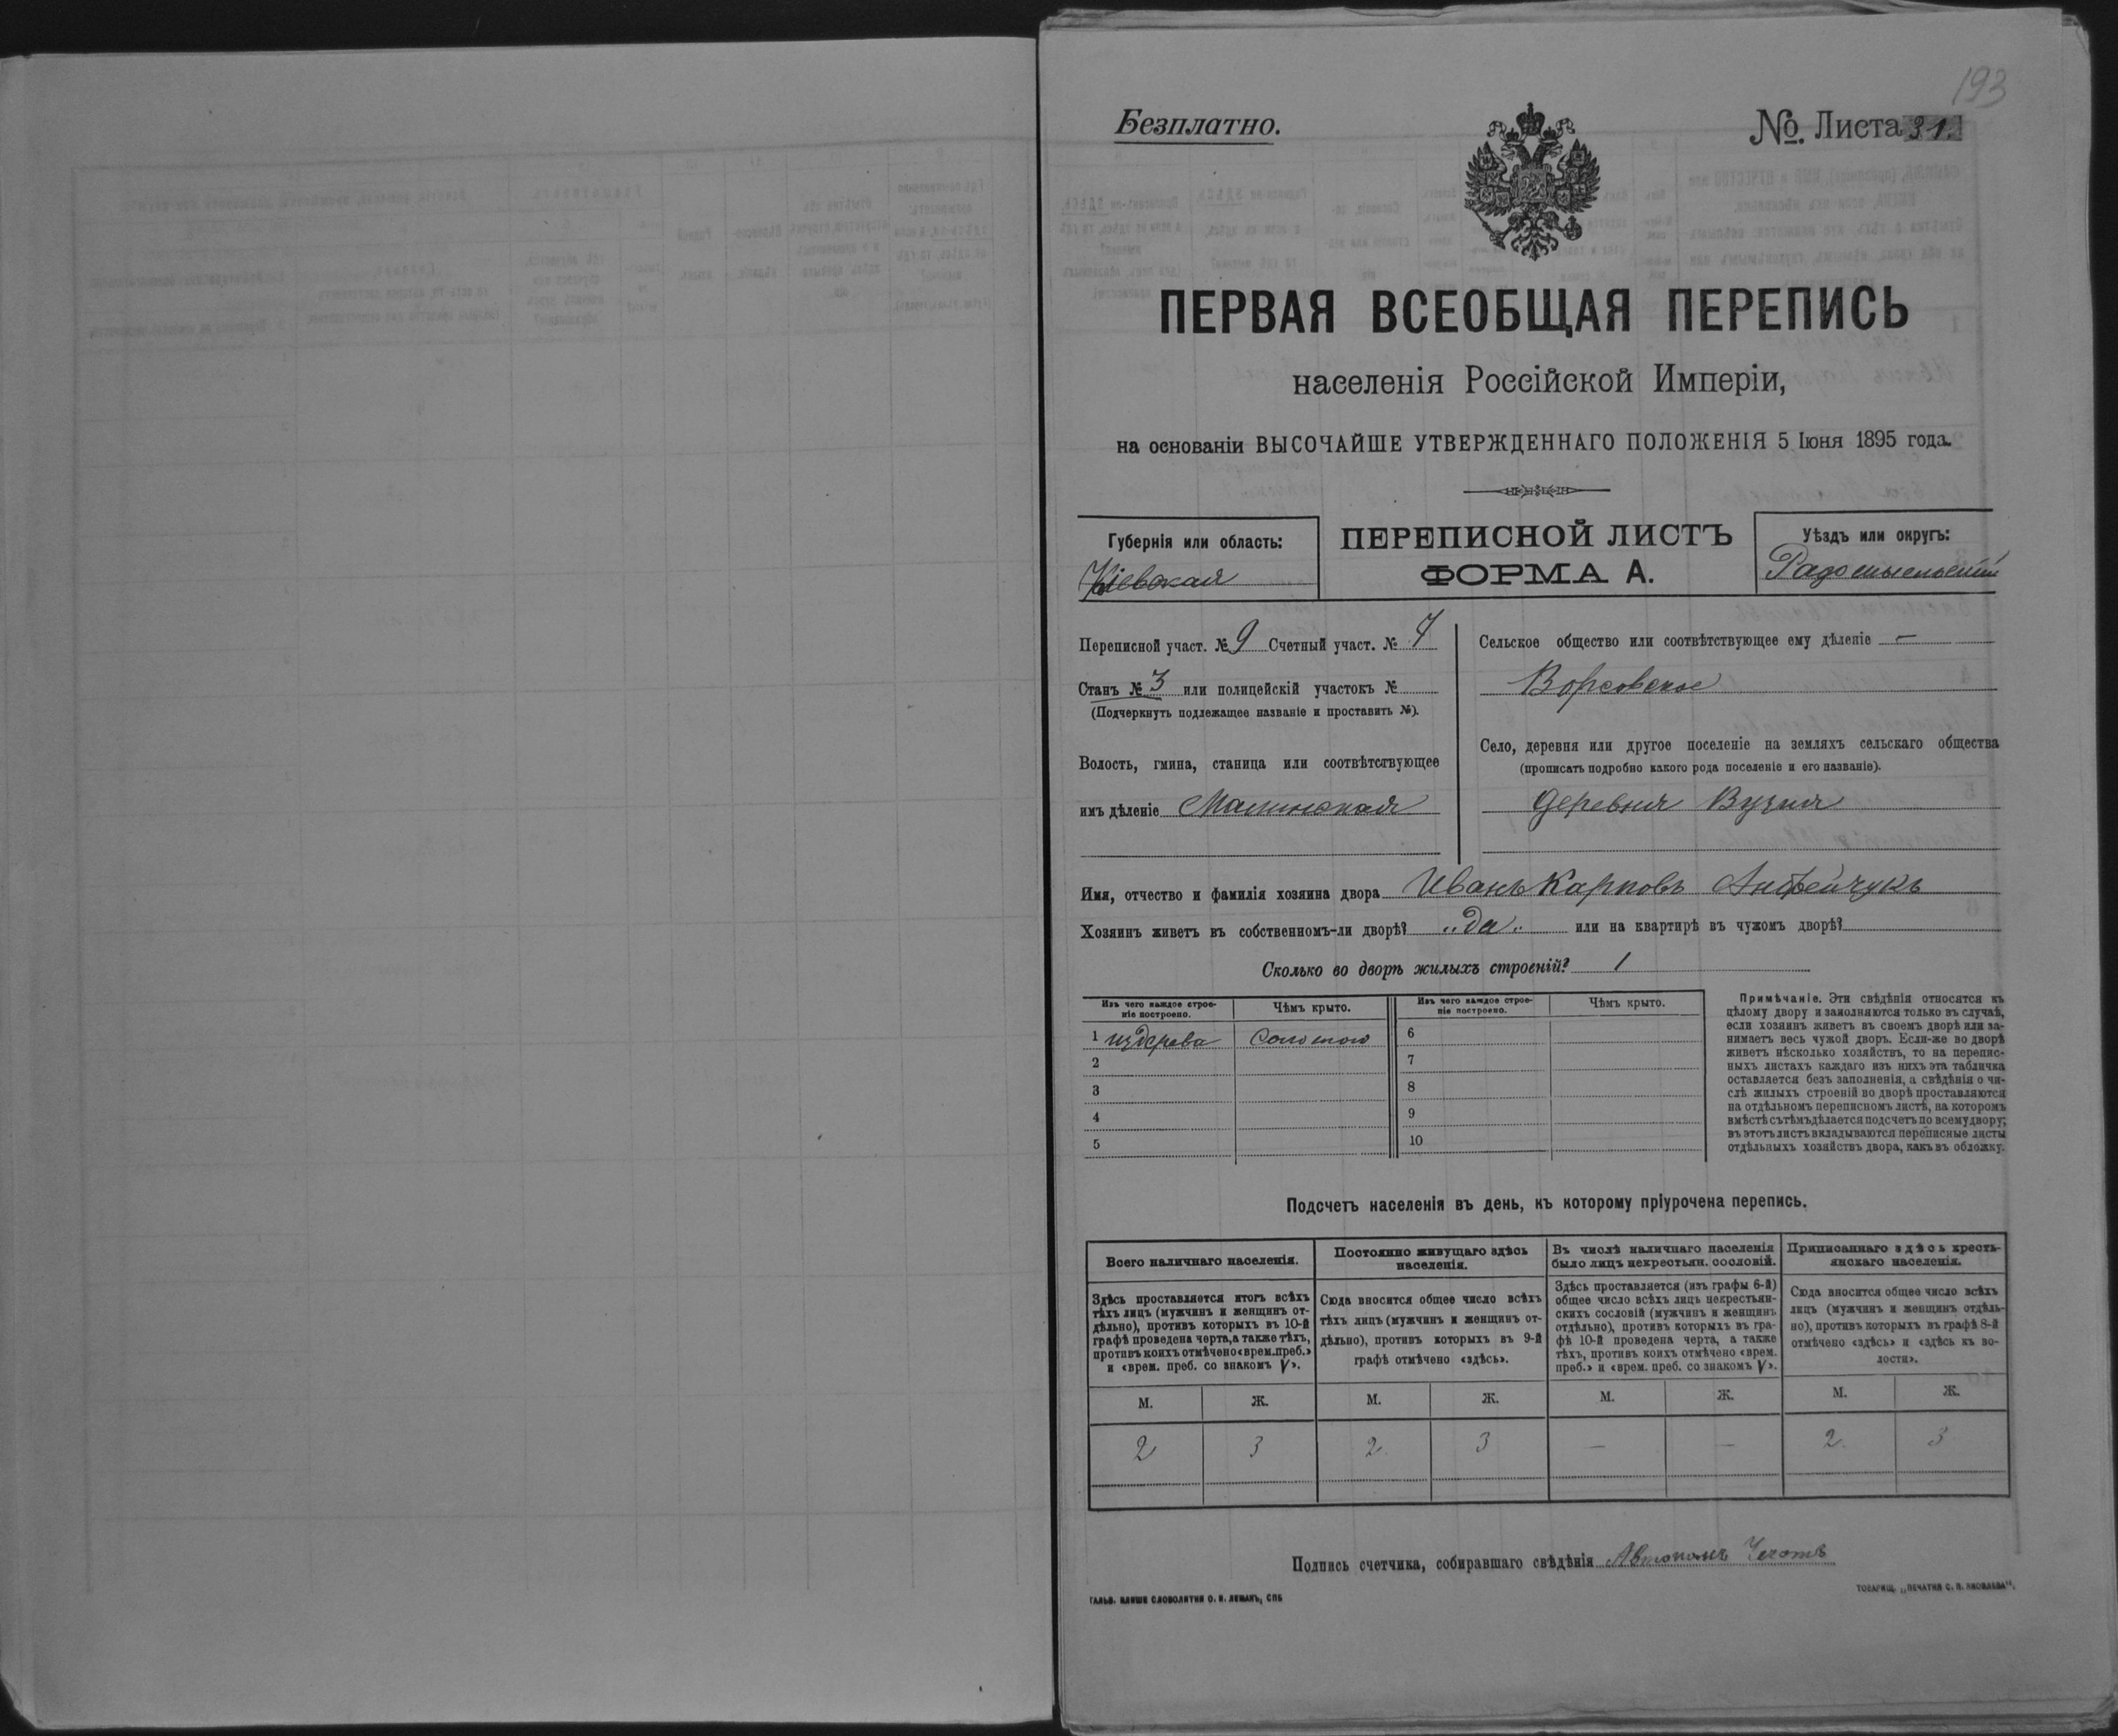 193
Безплатно.
№ Листа 31.
ПЕРВАЯ ВСЕОБЩАЯ ПЕРЕПИСЬ
населенія Россійской Имперіи,
на основаніи ВЫСОЧАЙШЕ УТВЕРЖДЕННАГО ПОЛОЖЕНІЯ 5 Іюня 1895 года.
Губернія или область:
Кіевская
ПЕРЕПИСНОЙ ЛИСТЪ
ФОРМА А.
Уѣздъ или округъ:
Радомысльскій
Переписной участ. № 9 Счетный участ. № 7
Станъ № 3 или полицейскій участокъ №
(Подчеркнуть подлежащее названіе и проставить №).
Волость, гмина, станица или соотвѣтствующее
имъ дѣленіе Малинская
Сельское общество или соотвѣтствующее ему дѣленіе —
Ворсовское
Село, деревня или другое поселеніе на земляхъ сельскаго общества
(прописать подробно какого рода поселеніе и его названіе).
деревня Вузня
Имя, отчество и фамилія хозяина двора Иванъ Карповъ Андрейчукъ
Хозяинъ живетъ въ собственномъ-ли дворѣ? „да„ или на квартирѣ въ чужомъ дворѣ?
Сколько во дворѣ жилыхъ строеній? 1
Изъ чего каждое строе-
ніе построено.
Чѣмъ крыто.
Изъ чего каждое строе-
ніе построено.
Чѣмъ крыто.
1 из дерева соломою 6
2 7
3 8
4 9
5 10
Примѣчаніе. Эти свѣдѣнія относятся къ
цѣлому двору и заполняются только въ случаѣ,
если хозяинъ живетъ въ своемъ дворѣ или за-
нимаетъ весь чужой дворъ. Если-же во дворѣ
живетъ нѣсколько хозяйствъ, то на перепис-
ныхъ листахъ каждаго изъ нихъ эта табличка
оставляется безъ заполненія, а свѣдѣнія о чи-
слѣ жилыхъ строеній во дворѣ проставляются
на отдѣльномъ переписномъ листѣ, на которомъ
вмѣстѣ съ тѣмъ дѣлается подсчетъ по всему двору;
въ этотъ листъ вкладываются переписные листы
отдѣльныхъ хозяйствъ двора, какъ въ обложку.
Подсчетъ населенія въ день, къ которому пріурочена перепись.
Всего наличнаго населенія.
Здѣсь проставляется итогъ всѣхъ
тѣхъ лицъ (мужчинъ и женщинъ от-
дѣльно), противъ которыхъ въ 10-й
графѣ проведена черта, а также тѣхъ,
противъ коихъ отмѣчено «врем. преб.»
и «врем. преб. со знакомъ V».
Постоянно живущаго здѣсь
населенія.
Сюда вносится общее число всѣхъ
тѣхъ лицъ (мужчинъ и женщинъ от-
дѣльно), противъ которыхъ въ 9-й
графѣ отмѣчено «здѣсь».
Въ числѣ наличнаго населенія
было лицъ некрестьян. сословій.
Здѣсь проставляется (изъ графы 6-й)
общее число всѣхъ лицъ некрестьян-
скихъ сословій (мужчинъ и женщинъ
отдѣльно), противъ которыхъ въ гра-
фѣ 10-й проведена черта, а также
тѣхъ, противъ коихъ отмѣчено «врем.
преб.» и «врем. преб. со знакомъ V».
Приписаннаго здѣсь кресть-
янскаго населенія.
Сюда вносится общее число всѣхъ
лицъ (мужчинъ и женщинъ отдѣль-
но), противъ которыхъ въ графѣ 8-й
отмѣчено «здѣсь» и «здѣсь къ во-
лости».
М. Ж. М. Ж. М. Ж. М. Ж.
2 3 2. 3 — — 2. 3
Подпись счетчика, собиравшаго свѣдѣнія Автономъ
ГАЛЬВ. КЛИШЕ СЛОВОЛИТНИ О. И. ЛЕМАНЪ, СПБ
ТОВАРИЩ. „ПЕЧАТНЯ С. П. ЯКОВЛЕВА".